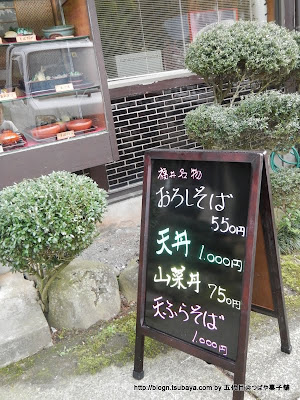 福井名物
おろしそば
550円
天丼
1.000円
山菜丼
750円
天ぷらそば
1.000円
http://blogn.tsubaya.com by 五代目@つばや菓子舗